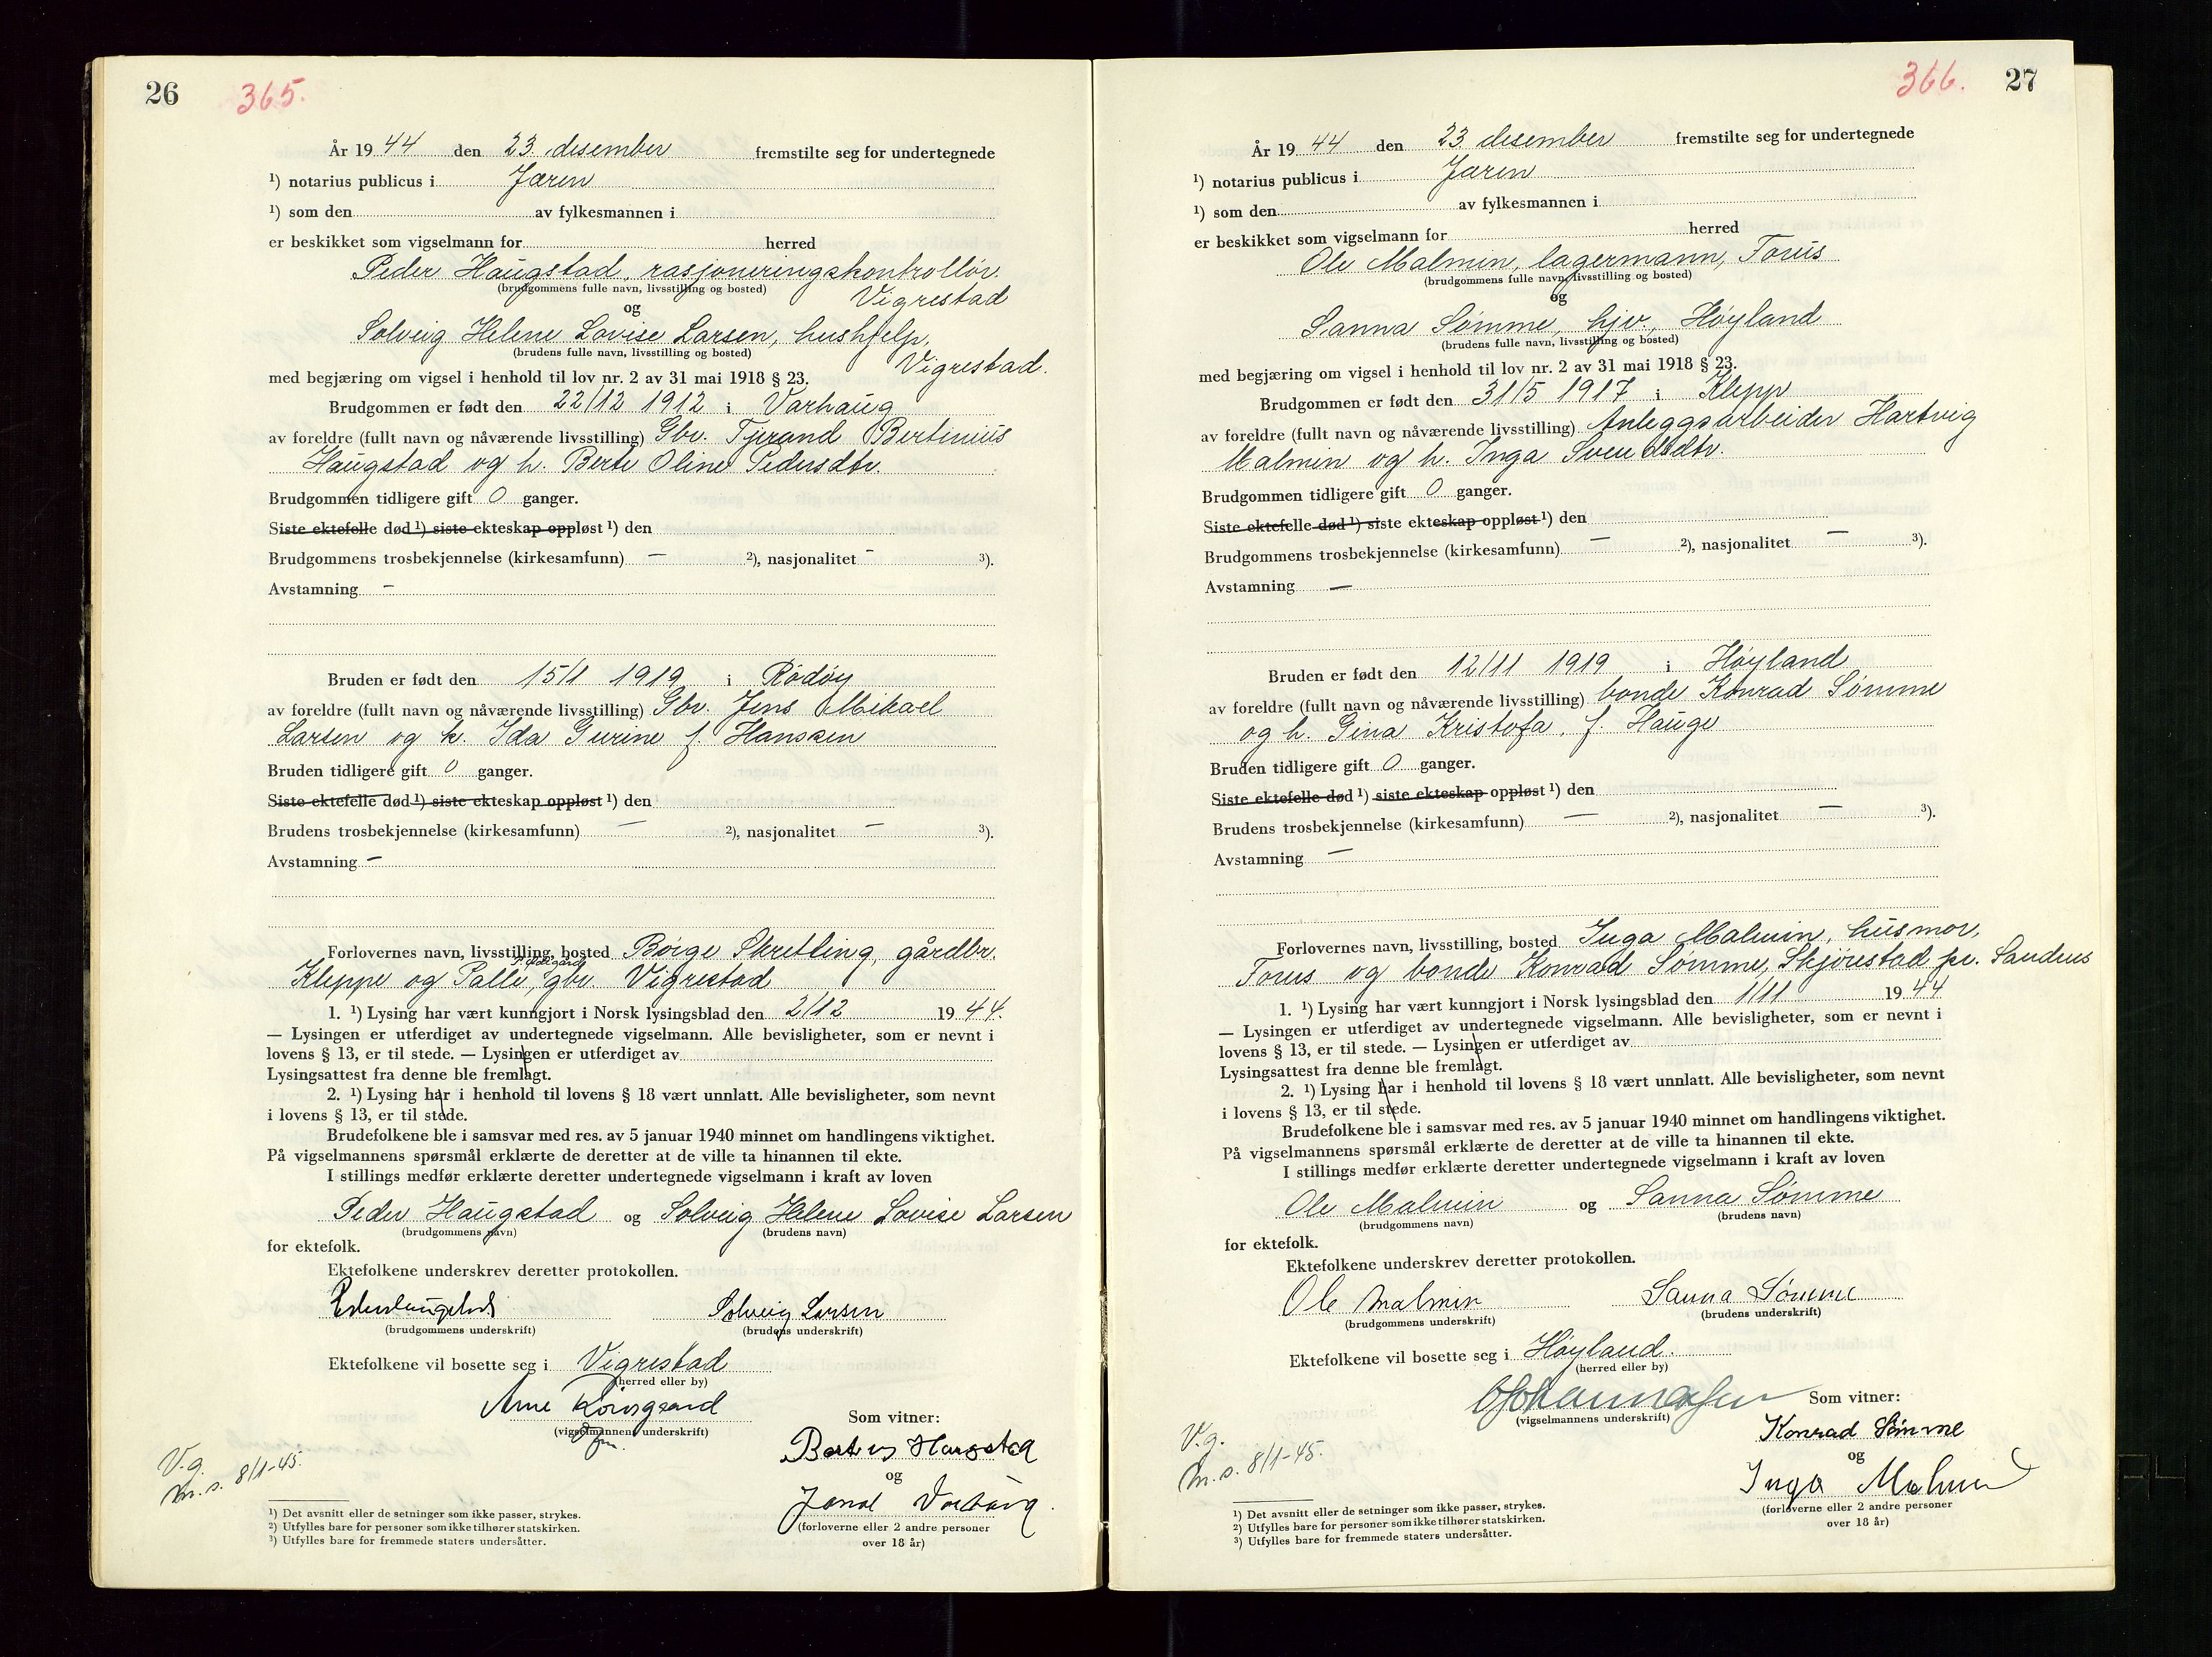 26 365.
År 19 44 den 23. desember fremstilte seg for undertegnede
¹) notarius publicus i Jæren
¹) som den av fylkesmannen i
er beskikket som vigselmann for herred
Peder Haugstad, rasjoneringskontrollør.
(brudgommens fulle navn, livsstilling og bosted) Vigrestad
og
Solveig Helene Lovise Larsen, hushjelp,
(brudens fulle navn, livsstilling og bosted)
Vigrestad.
med begjæring om vigsel i henhold til lov nr. 2 av 31 mai 1918 § 23.
Brudgommen er født den 22/12 1912 i Varhaug
av foreldre (fullt navn og nåværende livsstilling) Gbr. Tjerand Bertinius
Haugstad og h. Berte Oline Pedersdtr.
Brudgommen tidligere gift 0 ganger.
Siste ektefelle død ¹) siste ekteskap oppløst ¹) den
Brudgommens trosbekjennelse (kirkesamfunn) — ²), nasjonalitet - ³).
Avstamning -
Bruden er født den 15/1 1919 i Rødøy
av foreldre (fullt navn og nåværende livsstilling) Gbr. Jens Mikael
Larsen og h. Ida Gurine f. Hanssen
Bruden tidligere gift 0 ganger.
Siste ektefelle død ¹) siste ekteskap oppløst ¹) den
Brudens trosbekjennelse (kirkesamfunn) — ²), nasjonalitet — ³).
Avstamning -
Forlovernes navn, livsstilling, bosted Børge Skretting, gårdbr.
Kleppe og Palle, gbr. Vigrestad
1. ¹) Lysing har vært kunngjort i Norsk lysingsblad den 2/12 19 44.
— Lysingen er utferdiget av undertegnede vigselmann. Alle bevisligheter, som er nevnt i
lovens § 13, er til stede. — Lysingen er utferdiget av
Lysingsattest fra denne ble fremlagt.
2. ¹) Lysing har i henhold til lovens § 18 vært unnlatt. Alle bevisligheter, som nevnt
i lovens § 13, er til stede.
Brudefolkene ble i samsvar med res. av 5 januar 1940 minnet om handlingens viktighet.
På vigselmannens spørsmål erklærte de deretter at de ville ta hinannen til ekte.
I stillings medfør erklærte deretter undertegnede vigselmann i kraft av loven
Peder Haugstad og Solveig Helene Lovise Larsen
(brudgommens navn) (brudens navn)
for ektefolk.
Ektefolkene underskrev deretter protokollen.
Solveig Larsen
(brudgommens underskrift) (brudens underskrift)
Ektefolkene vil bosette seg i Vigrestad
(herred eller by)
Arne
(vigselmannens underskrift)
Som vitner:
og
(forloverne eller 2 andre personer
over 18 år)
V.g.
m.s. 8/1-45.
¹) Det avsnitt eller de setninger som ikke passer, strykes.
²) Utfylles bare for personer som ikke tilhører statskirken.
³) Utfylles bare for fremmede staters undersåtter.
366. 27
År 19 44 den 23 desember fremstilte seg for undertegnede
¹) notarius publicus i Jæren
¹) som den av fylkesmannen i
er beskikket som vigselmann for herred
Ole Malmin, lagermann, Forus
(brudgommens fulle navn, livsstilling og bosted)
og
Sanna Sømme, hjv., Høyland
(brudens fulle navn, livsstilling og bosted)
med begjæring om vigsel i henhold til lov nr. 2 av 31 mai 1918 § 23.
Brudgommen er født den 31/5 1917 i Klepp
av foreldre (fullt navn og nåværende livsstilling) Anleggsarbeider Hartvig
Malmin og h. Inga
Brudgommen tidligere gift 0 ganger.
Siste ektefelle død ¹) siste ekteskap oppløst ¹) den
Brudgommens trosbekjennelse (kirkesamfunn) — ²), nasjonalitet — ³).
Avstamning —
Bruden er født den 12/11 1919 i Høyland
av foreldre (fullt navn og nåværende livsstilling) bonde Konrad Sømme
og h. Gina Kristofa, f. Hauge
Bruden tidligere gift 0 ganger.
Siste ektefelle død ¹) siste ekteskap oppløst ¹) den
Brudens trosbekjennelse (kirkesamfunn) — ²), nasjonalitet — ³).
Avstamning —
Forlovernes navn, livsstilling, bosted Inga Malmin, husmor,
Forus og bonde Konrad Sømme, Skjørestad pr. Sandnes
1. ¹) Lysing har vært kunngjort i Norsk lysingsblad den 1/11 19 44
— Lysingen er utferdiget av undertegnede vigselmann. Alle bevisligheter, som er nevnt i
lovens § 13, er til stede. — Lysingen er utferdiget av
Lysingsattest fra denne ble fremlagt.
2. ¹) Lysing har i henhold til lovens § 18 vært unnlatt. Alle bevisligheter, som nevnt
i lovens § 13, er til stede.
Brudefolkene ble i samsvar med res. av 5 januar 1940 minnet om handlingens viktighet.
På vigselmannens spørsmål erklærte de deretter at de ville ta hinannen til ekte.
I stillings medfør erklærte deretter undertegnede vigselmann i kraft av loven
Ole Malmin og Sanna Sømme
(brudgommens navn) (brudens navn)
for ektefolk.
Ektefolkene underskrev deretter protokollen.
Ole Malmin Sanna Sømme
(brudgommens underskrift) (brudens underskrift)
Ektefolkene vil bosette seg i Høyland.
(herred eller by)
(vigselmannens underskrift)
Som vitner:
Konrad Sømme
og
Inga Malmin
(forloverne eller 2 andre personer
over 18 år)
V.g.
m.s. 8/1-45.
¹) Det avsnitt eller de setninger som ikke passer, strykes.
²) Utfylles bare for personer som ikke tilhører statskirken.
³) Utfylles bare for fremmede staters undersåtter.